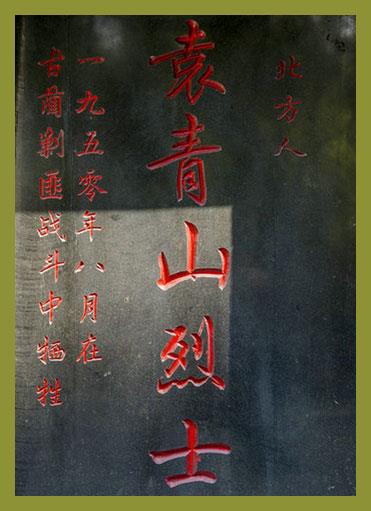 北方人
袁青山烈士
一九五零年八月在
古蔺剿匪战斗中牺牲